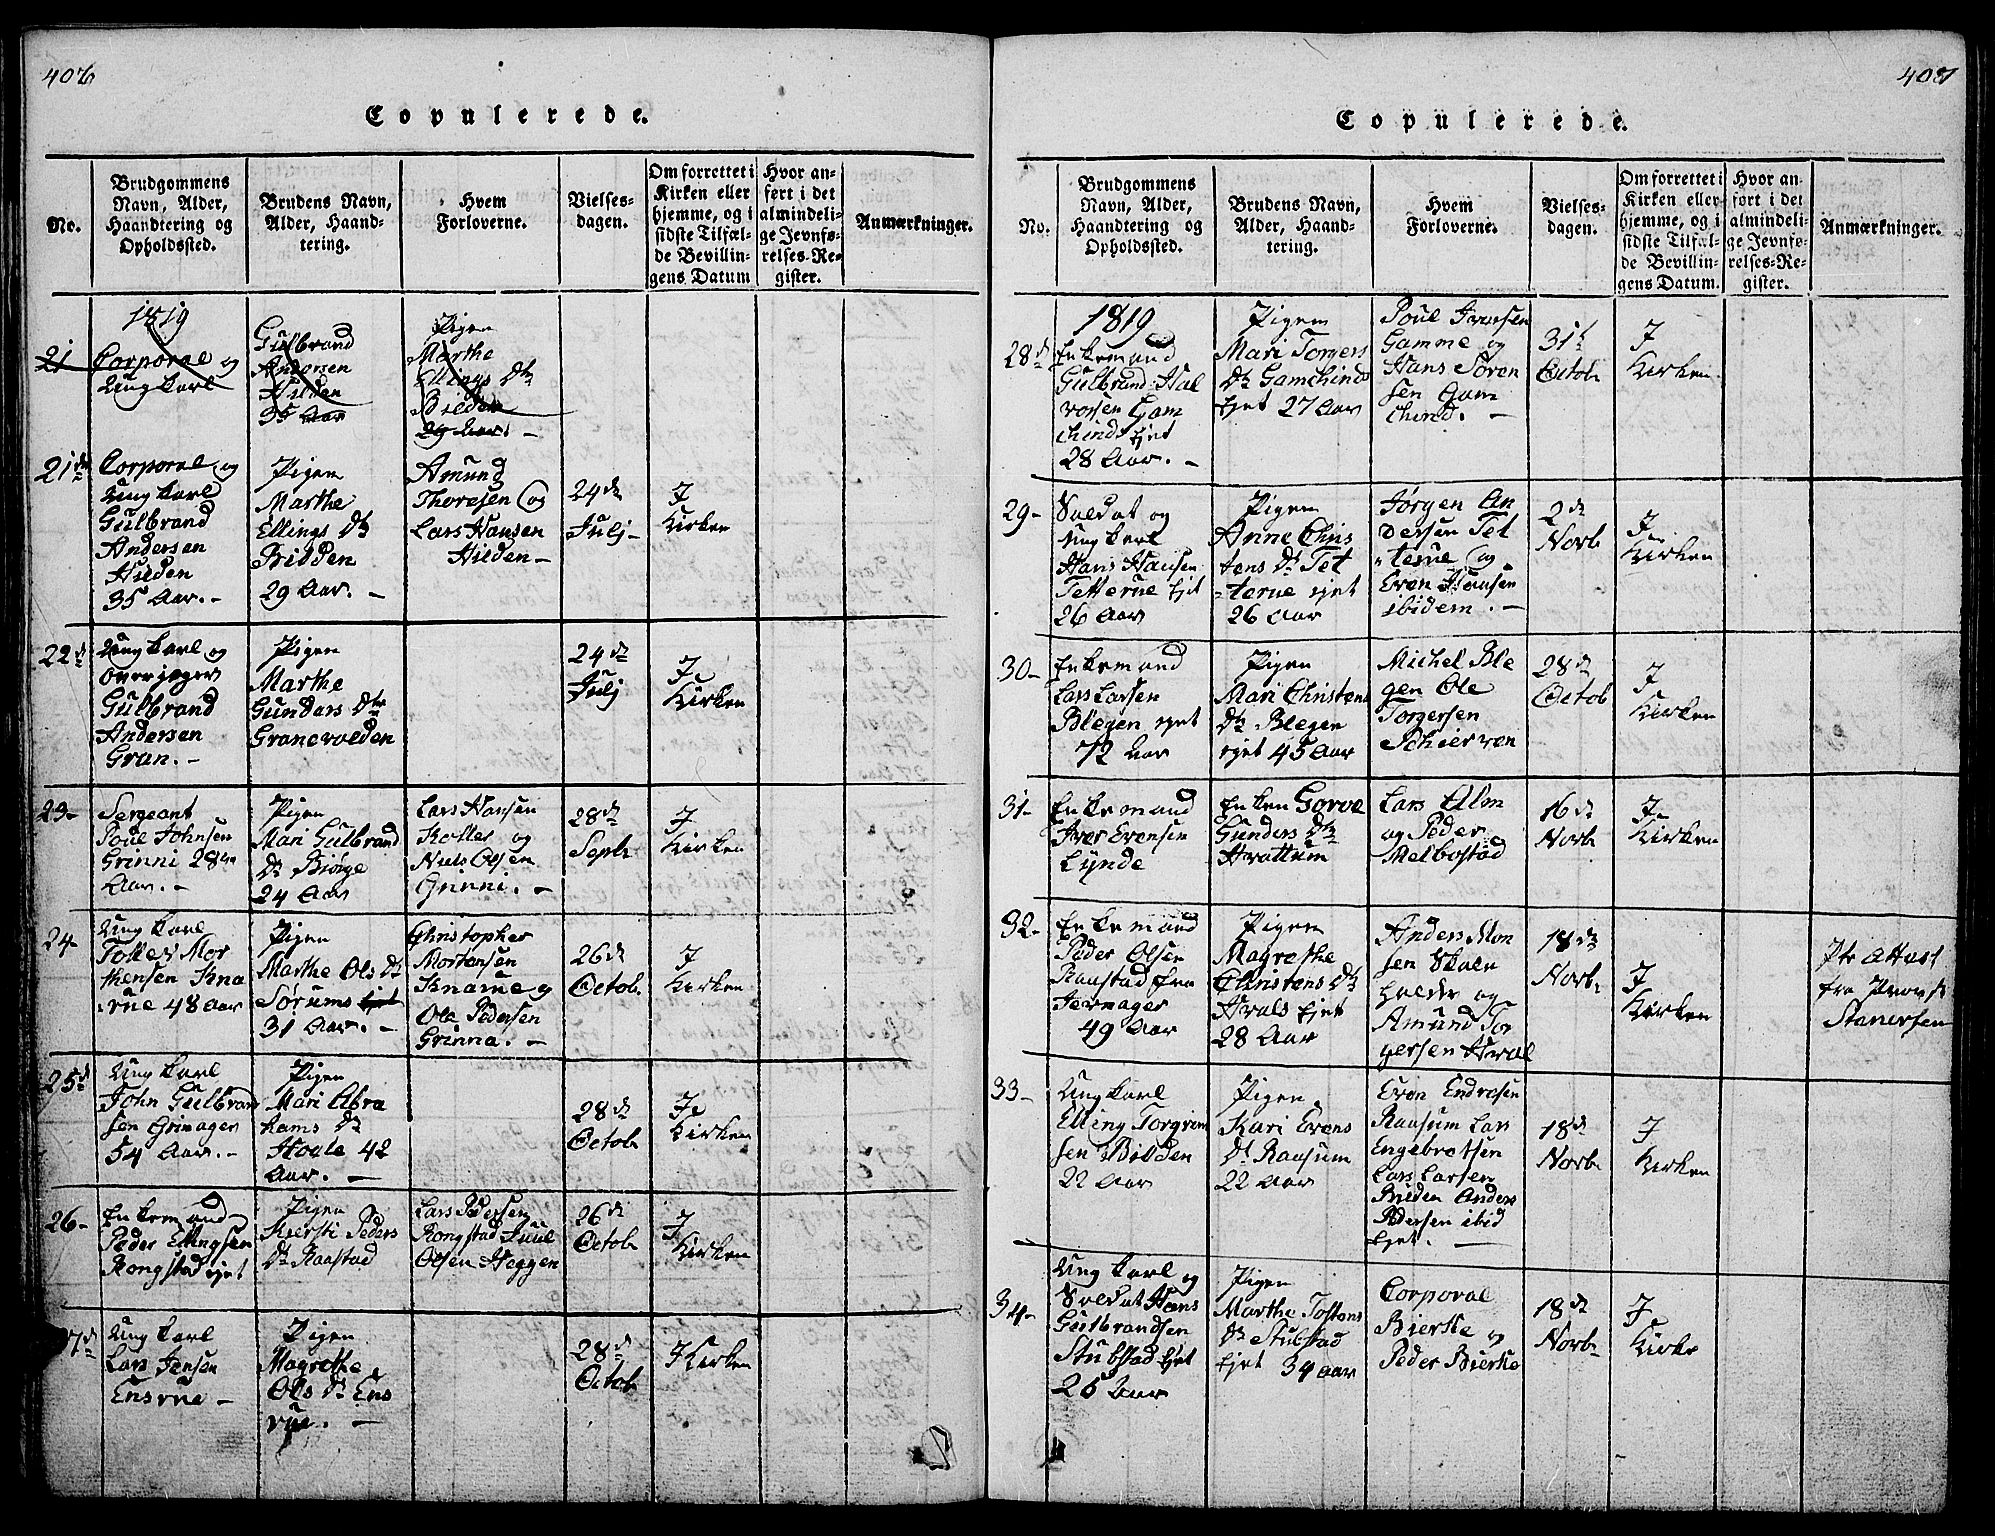 406
Copulerede.
No.
Brudgommens
Navn, Alder,
Haandtering og
Opholdssted.
Brudens Navn,
Alder, Haand-
tering.
Hvem
Forloverne.
Vielses-
dagen.
Om forrettet i
Kirken eller
hjemme, og i
sidste Tilfæl-
de Bevillin-
gens Datum
Hvor an-
ført i det
almindeli-
ge Jevnfø-
relses-Re-
gister.
Anmærkninger.
1819
21
Corporal og
Ung karl
Gulbrand
Andersen
Hilden
35 Aar
Pigen
Marthe
Ellings Dtr
Bilden
29 Aar. -
21de
Corporal og
Ung karl
Gulbrand
Andersen
Hilden
35 Aar. -
Pigen
Marthe
Ellings Dtr
Bilden
29 Aar. -
Amund
Thoresen og
Lars Hansen
Hilden -
24de
Julj
I
Kirken
22de
Ung karl og
Overjæger
Gulbrand
Andersen
Gran. -
Pigen
Marthe
Gundars Dtr
Granevolden
24de
Julj
I
Kirken
23-
Sergeant
Poul Johnsen
Grinni 28
Aar. -
Pigen
Mari Gulbrand
Dr Biørge
24 Aar
Lars Hansen
og
Niels Olsen
Grinni. -
28de
Septb
I
Kirken
24-
Ung karl
Tolles Mor
thensen Kna
rue 48 Aar
Pigen
Marthe Ols Dr
Sørums Ejet
31 Aar. -
Christopher
Mortensen
Knarue og
Ole Pedersen
Grinna. -
26de
Octob
I
Kirken
25de
Ung karl
John Gulbrand
sen Grinager
54 Aar. -
Pigen
Mari Abra
hams Dr
Hoale 42
Aar. -
28de
Octob
I
Kirken
26-
Enkemand
Peder Ellingsen
Rongstad ejet
Pigen
Kiersti Peders
Dr Raastad
Lars Pedersen
Rongstad Juul
Olsen Heggen
26de
Octob
I
Kirken
27de
Ung karl
Lars Jensen
Ensrue -
Pigen
Magrethe
Ols Dr Ens
rue. -
28de
Octob
I Kirken
407
Copulerede.
No.
Brudgommens
Navn, Alder,
Haandtering og
Opholdssted.
Brudens Navn,
Alder, Haand-
tering.
Hvem
Forloverne.
Vielses-
dagen.
Om forrettet i
Kirken eller
hjemme, og i
sidste Tilfæl-
de Bevillin-
gens Datum.
Hvor an-
ført i det
almindeli-
ge Jevnfø-
relses-Re-
gister.
Anmærkninger.
1819
28de
Enkemand
Gulbrand Hal
vorsen Gam
chinds Ejet
28 Aar. -
Pigen
Mari Torgers
Dr Gamchinds
Ejet 27 Aar
Poul Iversen
Gamme og
Hans Søren
sen Gam
chind. -
31t
Octob
I
Kirken
29-
Soldat og
Ung karl
Hans Hansen
Tetterue Ejet
26 Aar
Pigen
Anne Chris
tens Dr Tet
terue ejet
26 Aar
Jørgen An
dersen Tet
terue og
Even Hansen
ibidem. -
2de
Norb
I
Kirken
30-
Enkemand
Lars Larsen
Blegen ejet
72 Aar
Pigen
Mari Christens
Dr Blegen
ejet 45 Aar
Michel Ble
gen Ole
Torgersen
Schierven
28de
Octob
I
Kirken
31-
Enkemand
Iver Evensen
Lynde
Enken Gorve
Gunders Dtr
Hvattum
Lars Alm
og Peder
Melbostad
16de
Norb
I
Kirken
32-
Enkemand
Peder Olsen
Raastad fra
Jevnager
49 Aar
Pigen
Magrethe
Christens Dtr
Hvals Ejet
28 Aar
Anders Mon
sen
og
Amund Tor
gersen Hval
18de
Norb
I
Kirken
Ptr Attest
fra Provst
Stanersen
33-
Ung karl
Elling Torgrim
sen Bilden
22 Aar
Pigen
Kari Evens
Dt Raasum
22 Aar
Even Endresen
Raasum Lars
Engebretsen
Lars Larsen
Bilden Anders
Pedersen ibid
Ejet.
18de
Norb
I
Kirken
34-
Ung karl og
Soldat Hans
Gulbrandsen
Stubstad Ejet
25 Aar
Pigen
Marthe Tostens
Dr Stubstad
Ejet 34 Aar
Corporal
Bierke og
Peder Bierke
18de
Norb
I
Kirke